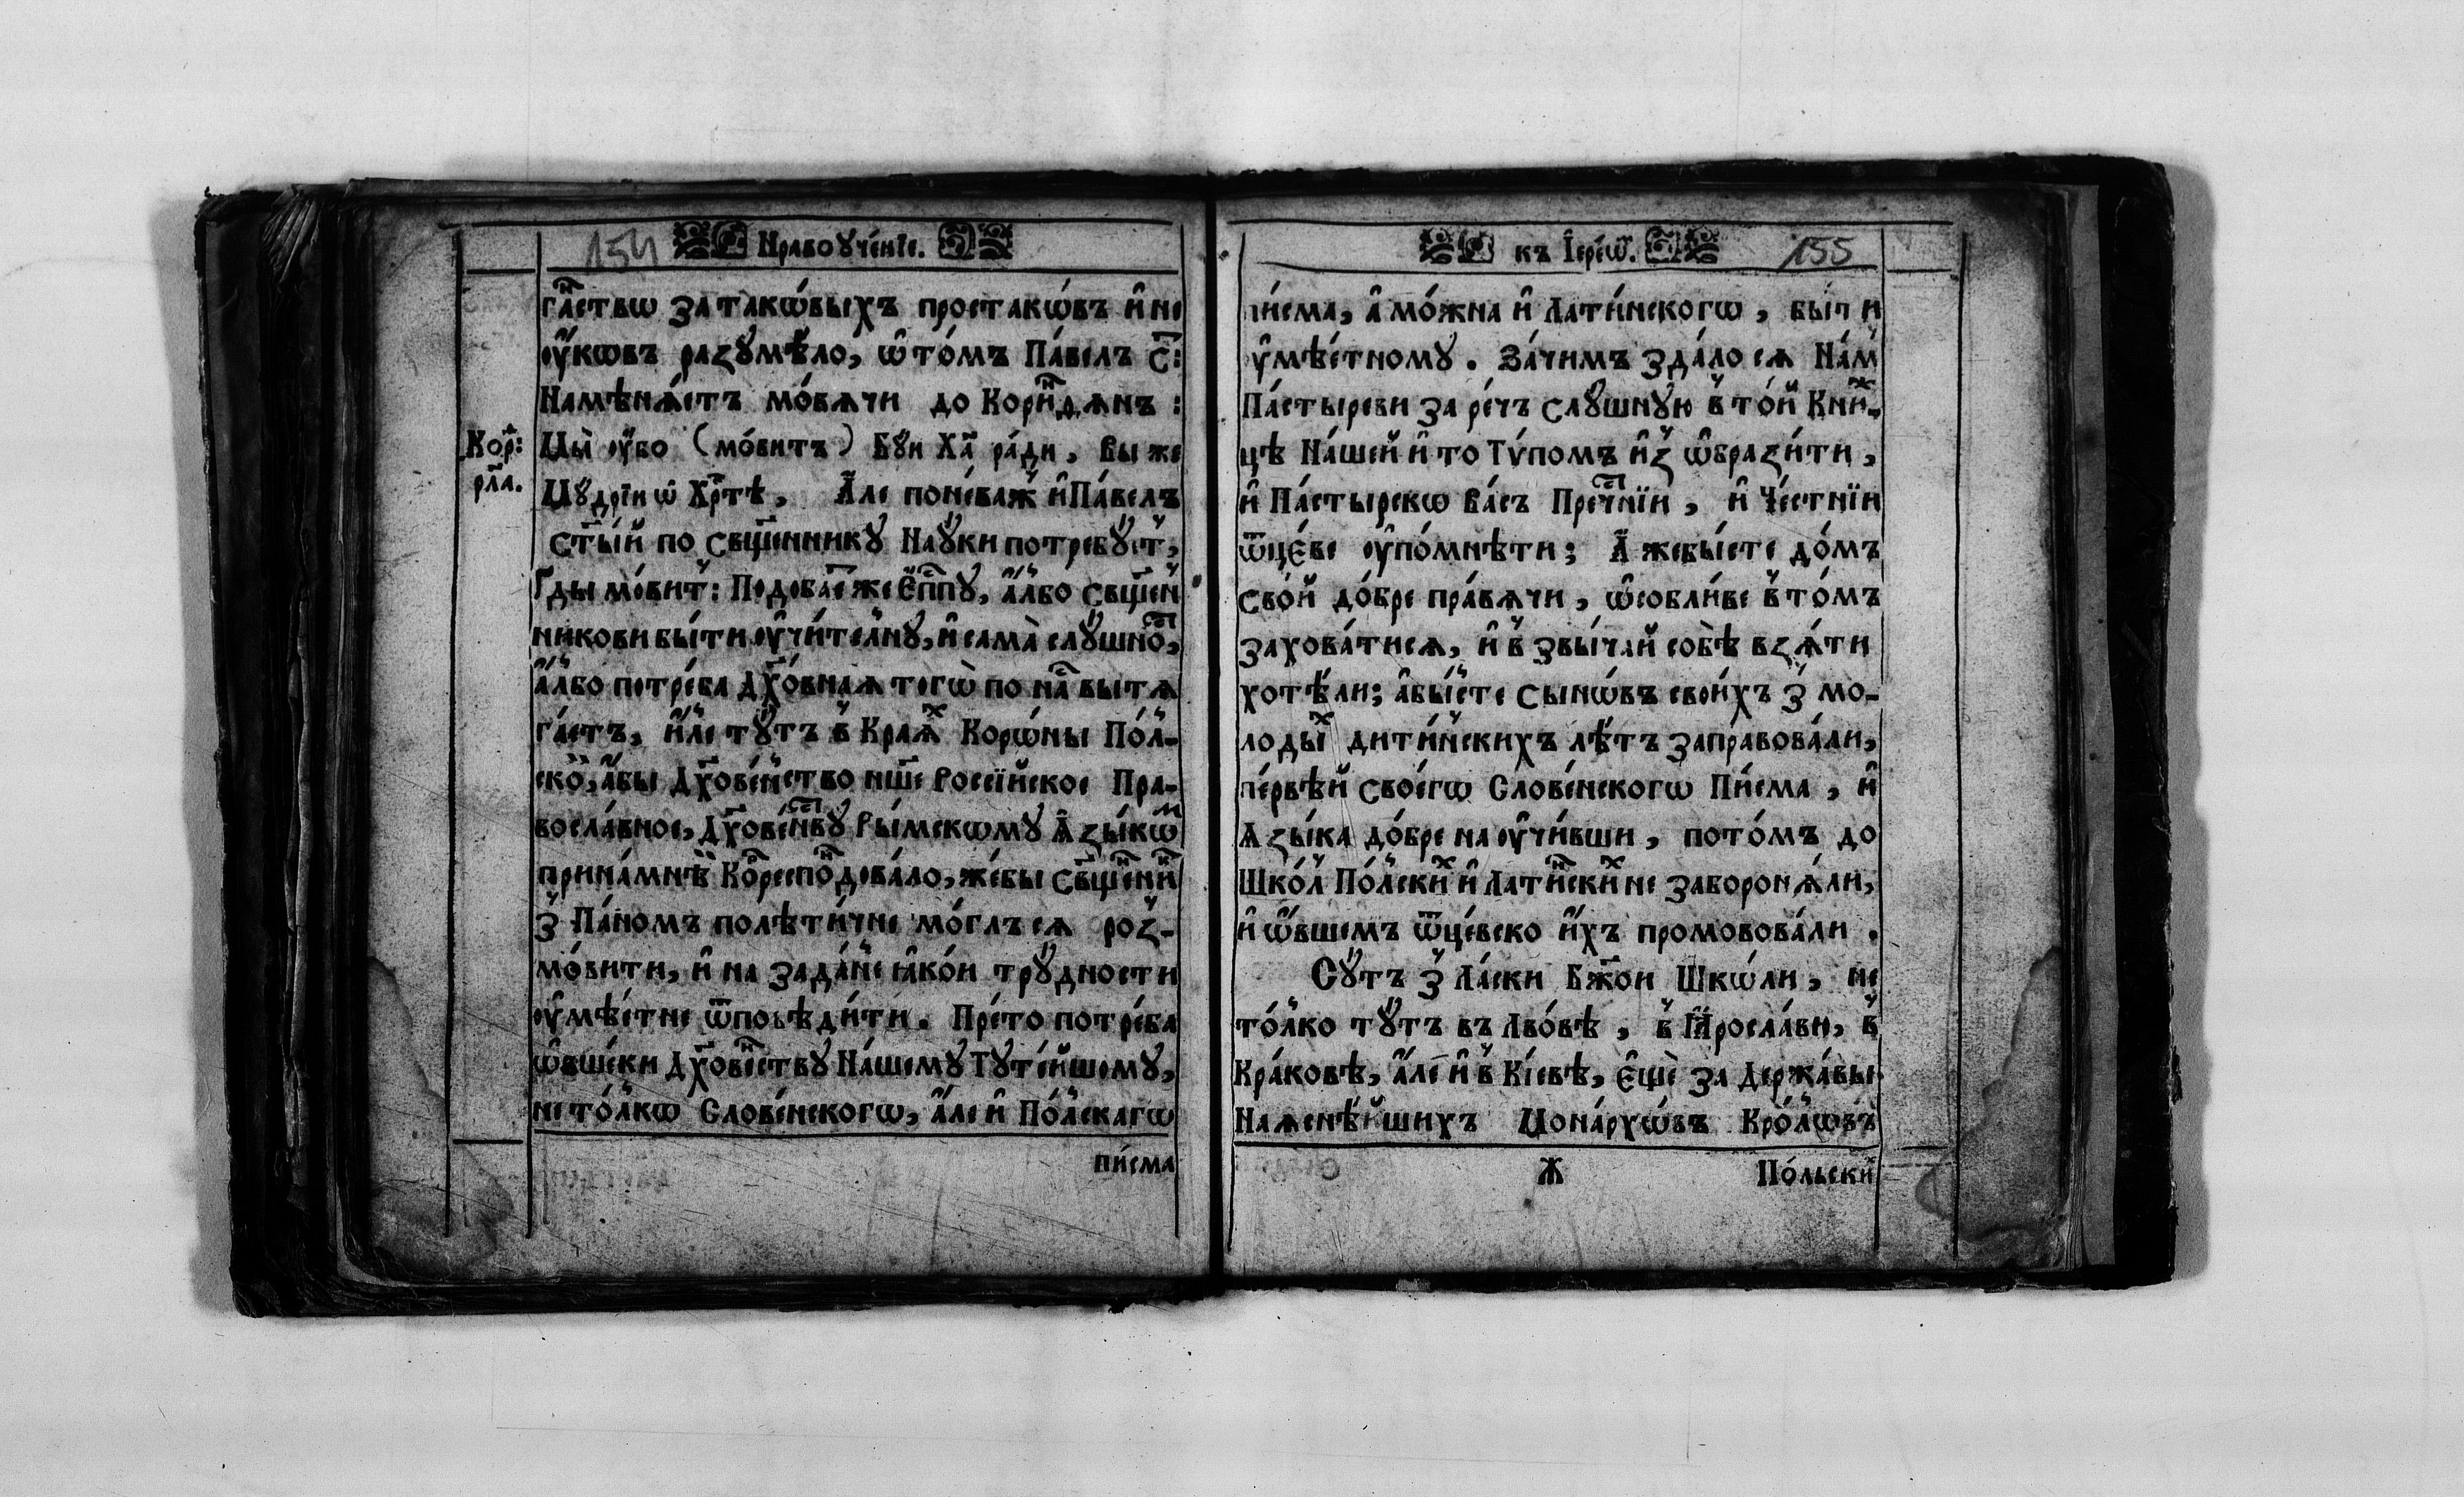 154 Нравоꙋче́нїе.
га̾ствѡ за такѡ́выхъ простакѡ́въ и҆ не
оу҆́кѡвъ разꙋмѣ́ло, ѡ҆ то́мъ Па́велъ С҃:
Намѣнѧ́етъ мо́вѧчи до Корин̾дѧнъ :
Кор̾:
рл҃а.
Мы̀ оу҆́бо (мо́витъ) Бꙋ́и Ха҃ ра́ди, Вы же
Мꙋ́дрїи ѡ҆ Хр҃тѣ, А҆ле поне́важ̾ и҆ Па́велъ
ст҃ы́й по сщ҃е́нникꙋ Наꙋ́ки потребꙋ́ет̾,
Гды мо́вит̾: Подоба́е же Е҆пп҃ꙋ, а҆́лбо сщ҃ен̾
никови бы́ти оу҆чи́телнꙋ, и҆ сама̀ слꙋ́шно,
а҆́лбо потре́ба дх҃о́внаѧ тогѡ̀ по на́ вытѧ
га́етъ, и҆́ле тꙋ́тъ в̾ Краѧ́х Корѡ́ны По́л̾-
ско́, а҆́бы Дх҃ове́н̾ство нш҃е Россі́йское Пра-
восла́вное, Дх҃ове́нв҃ꙋ Ры́мскѡмꙋ Ѧ҆зы́кѡм
прина́мнѣ́й Корреспон̾дова́ло, же́бы сщ҃е́нни
з̾ Па́номъ полѣти́чне мо́глъ сѧ роз̾-
мо́вити, и҆ на зада́н̾е ꙗ҆ко́и трꙋ́дности
оу҆мѣ́етне ѿповѣди́ти. Пре́то потре́ба
ѡ҆вше́ки Дх҃ове́нствꙋ На́шемꙋ Тꙋте́йшомꙋ,
не то́л̾кѡ Слове́нскогѡ, а҆́ле и҆ По́л̾скагѡ
пи́сма
къ І҆ере́ѡм̾. 155
пи́сма, а҆ мо́жна и҆ Лати́нскогѡ, бы́ти
оу҆мѣ́етномꙋ. За́чимъ зда́ло сѧ На́м̾
Па́стыреви за ре́чъ слꙋ́шнꙋю в̾ то́й Кни́ж-
цѣ На́шей и҆ то Тѵ́помъ и҆з̾ ѡ҆брази́ти,
и҆ Па́стырскѡ Ва́съ Пречⷭ҇нїи, и҆ Че́стнїи
ѿцЄ́ве оу҆по́мнѣти; А҆ жебы́сте до́мъ
сво́й до́бре пра́вѧчи, ѡ҆собли́ве в̾ то́мъ
захова́тисѧ, и҆ в̾ звы́чай собѣ̀ взѧ́ти
хотѣ́ли; а҆бы́сте сынѡ́въ свои́хъ з̾ мо-
лоды́х дити́н̾скихъ лѣ́тъ заправова́ли,
пе́рвѣй свое́гѡ Слове́нскогѡ Пи́сма, и҆
Ѧзы́ка до́бре на оу҆чи́вши, пото́мъ до
Шко́л̾ По́л̾скиⷯ и҆ Латин̾скиⷯ не заборонѧ́ли,
и҆ ѡ҆́вшемъ ѿце́вско и҆́хъ промовова́ли .
Сꙋ́тъ з̾ Ла́ски Бж҃ои Шкѡ́ли, не
то́л̾ко тꙋ́тъ въ Лво́вѣ, в̾ Ꙗ҆росла́ви, в̾
Кра́ковѣ, а҆́ле и҆ в̾ Кі́евѣ, Є҆щѐ за Держа́вы
Наѧснѣ́йшихъ Мона́рхѡ́въ Кро́л̾ѡвъ
Ж По́льски